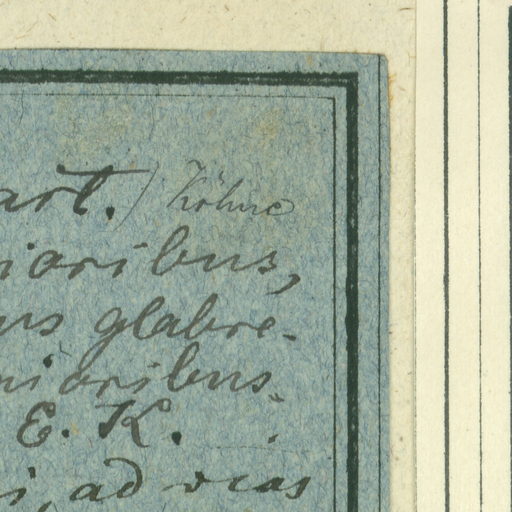 art.) Köhne
ioribus,
us glabre-
nioribus
E. K.
i, ad vias